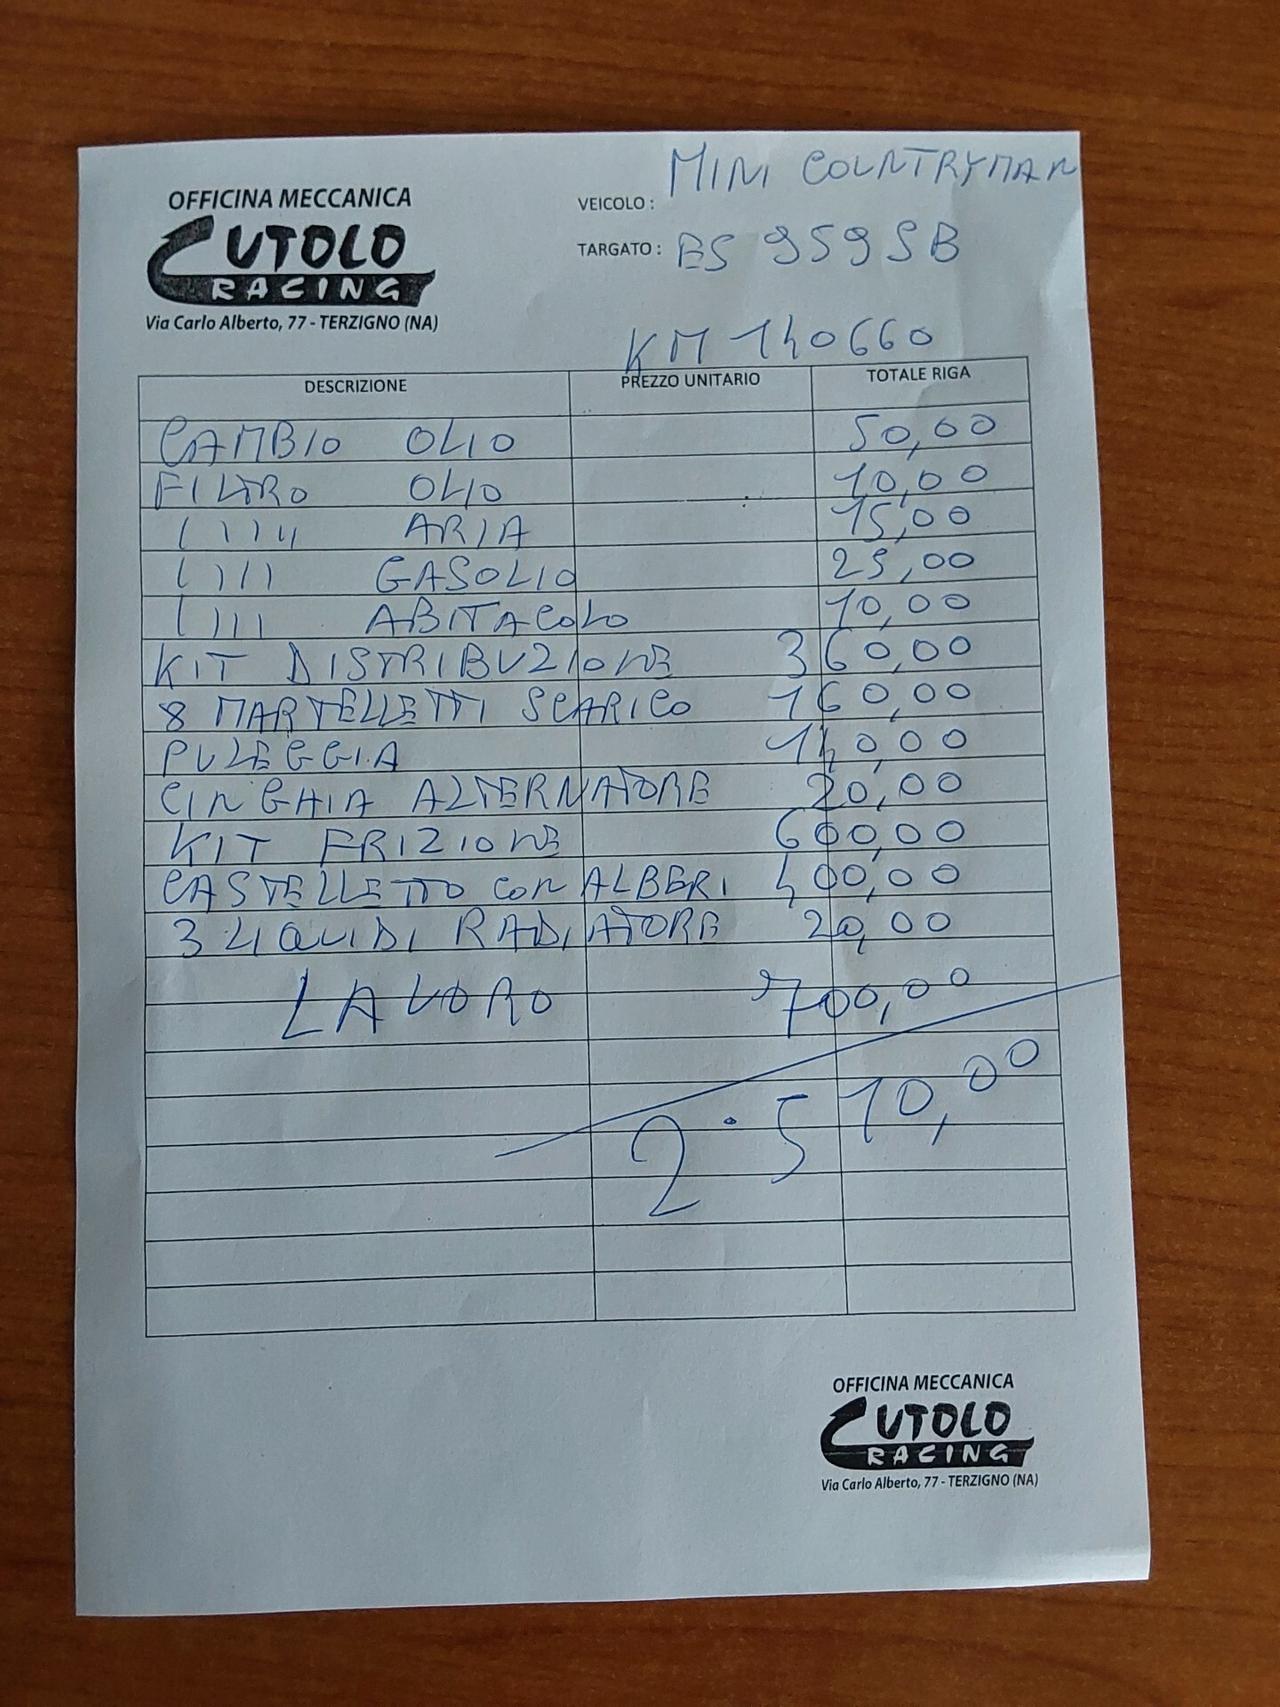 OFFICINA MECCANICA
CUTOLO
RACING
Via Carlo Alberto, 77 - TERZIGNO (NA)
VEICOLO : MINI COUNTRYMAN
TARGATO : ES 959 SB
KM 140660
DESCRIZIONE PREZZO UNITARIO TOTALE RIGA
CAMBIO OLIO 50,00
FILTRO OLIO 10,00
ARIA 15,00
GASOLIO 25,00
ABITACOLO 10,00
KIT DISTRIBUZIONE 360,00
8 MARTELLETTI SCARICO 160,00
PULEGGIA 140,00
CINGHIA ALTERNATORE 20,00
KIT FRIZIONE 600,00
CASTELLETTO CON ALBERI 400,00
3 LIQUIDI RADIATORE 20,00
LAVORO 700,00
2.510,00
OFFICINA MECCANICA
CUTOLO
RACING
Via Carlo Alberto, 77 - TERZIGNO (NA)